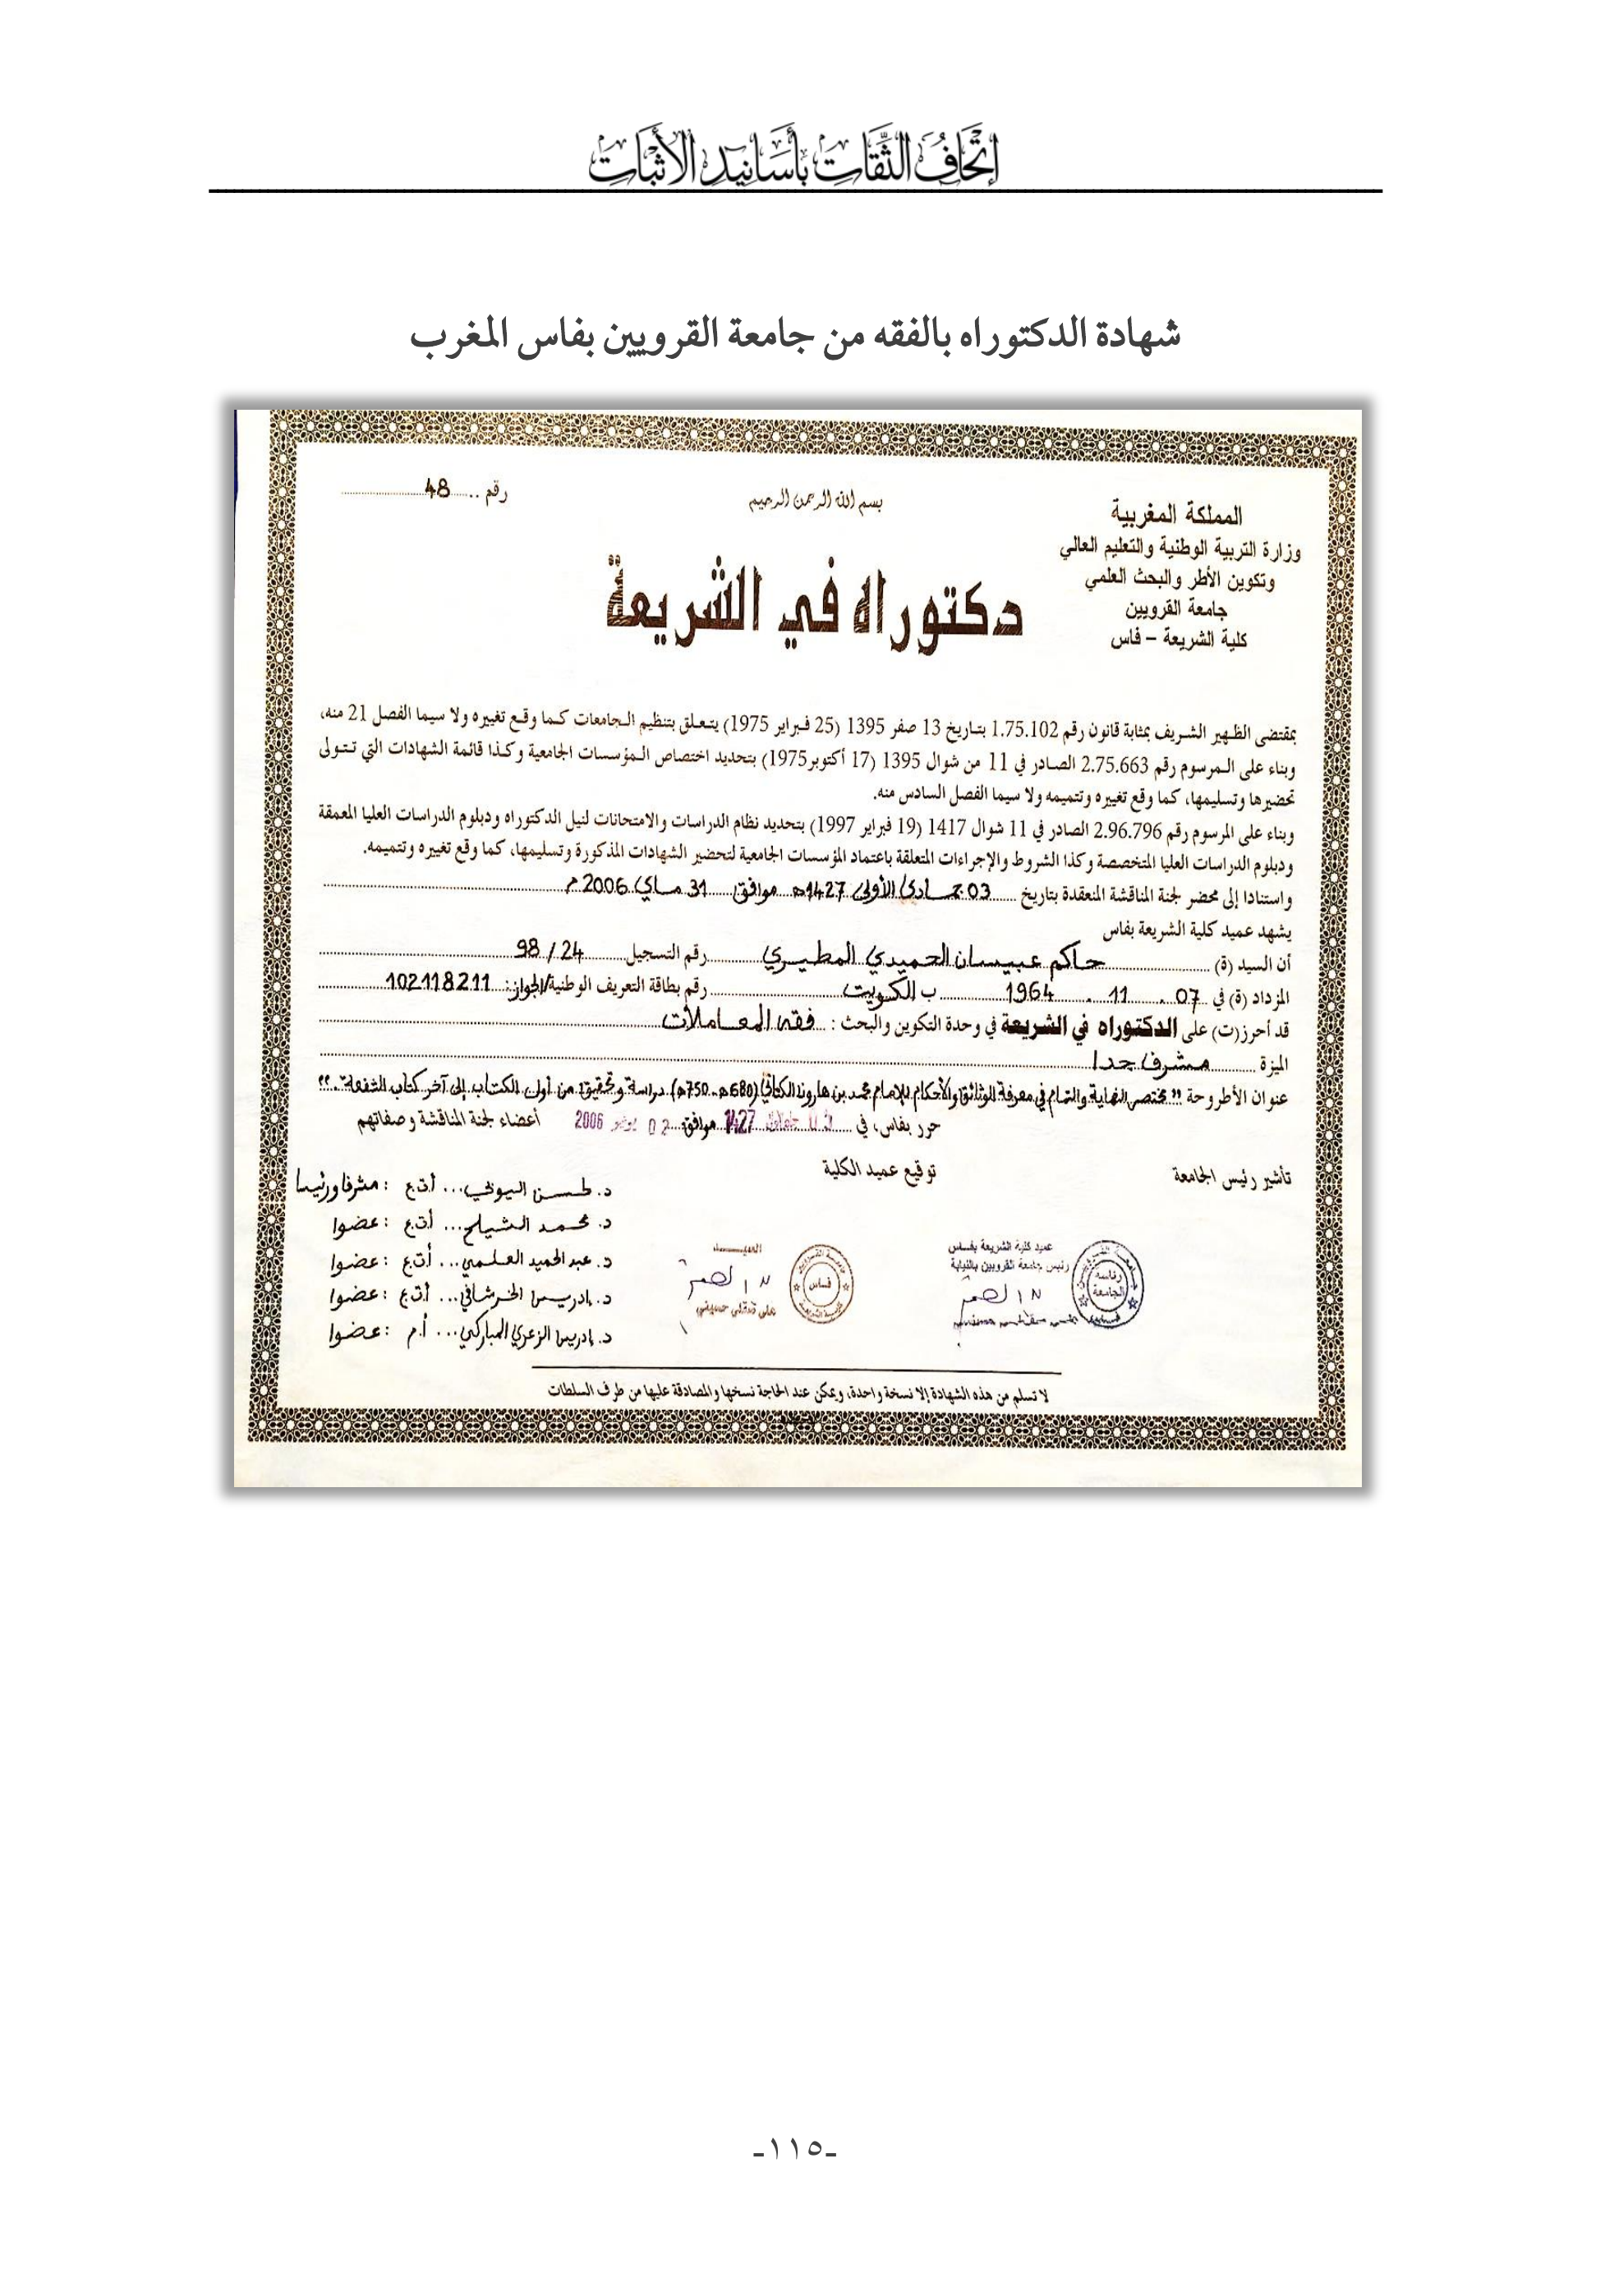 إتحاف الثقات بأسانيد الأثبات
شهادة الدكتوراه بالفقه من جامعة القرويين بفاس المغرب
المملكة المغربية
وزارة التربية الوطنية والتعليم العالي
وتكوين الأطر والبحث العلمي
جامعة القرويين
كلية الشريعة – فاس
بسم الله الرحمن الرحيم
رقم .. 48
دكتوراه في الشريعة
بمقتضى الظهير الشريف بمثابة قانون رقم 1.75.102 بتاريخ 13 صفر 1395 (25 فبراير 1975) يتعلق بتنظيم الجامعات كما وقع تغييره ولا سيما الفصل 21 منه،
وبناء على المرسوم رقم 2.75.663 الصادر في 11 من شوال 1395 (17 أكتوبر1975) بتحديد اختصاص المؤسسات الجامعية وكذا قائمة الشهادات التي تتولى
تحضيرها وتسليمها، كما وقع تغييره وتتميمه ولا سيما الفصل السادس منه.
وبناء على المرسوم رقم 2.96.796 الصادر في 11 شوال 1417 (19 فبراير 1997) بتحديد نظام الدراسات والامتحانات لنيل الدكتوراه ودبلوم الدراسات العليا المعمقة
ودبلوم الدراسات العليا المتخصصة وكذا الشروط والإجراءات المتعلقة باعتماد المؤسسات الجامعية لتحضير الشهادات المذكورة وتسليمها، كما وقع تغييره وتتميمه.
واستنادا إلى محضر لجنة المناقشة المنعقدة بتاريخ 03 جمادى الأولى 1427هـ موافق 31 ماي 2006 م
يشهد عميد كلية الشريعة بفاس
أن السيد (ة) حاكم عبيسان الحميدي المطيري رقم التسجيل 98/24
المزداد (ة) في 07 . 11 . 1964 ب الكويت رقم بطاقة التعريف الوطنية/الجواز: 102118211
قد أحرز(ت) على الدكتوراه في الشريعة في وحدة التكوين والبحث : فقه المعاملات
الميزة مشرف جدا
عنوان الأطروحة "مختصر النهاية والتمام في معرفة الوثائق والأحكام للإمام محمد بن هارون الكناني (680هـ-750هـ) دراسة وتحقيق من أول الكتاب إلى آخر كتاب الشفعة"
حرر بفاس، في 1427 موافق 02 يونيو 2006
أعضاء لجنة المناقشة وصفاتهم
تأشير رئيس الجامعة
توقيع عميد الكلية
د. محمد الشيلح ... أ.ت.ع : عضوا
د. عبد الحميد العلمي ... أ.ت.ع : عضوا
د. إدريس الخرشافي ... أ.ت.ع : عضوا
د. إدريس الزعري المباركي ... أ.م : عضوا
عميد كلية الشريعة بفاس
رئيس جامعة القرويين بالنيابة
رئاسة الجامعة
العميد
فاس
لا تسلم من هذه الشهادة إلا نسخة واحدة، ويمكن عند الحاجة نسخها والمصادقة عليها من طرف السلطات
-١١٥-